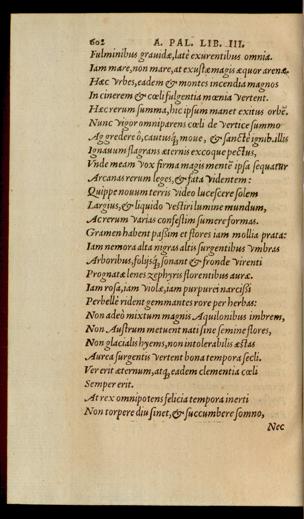 602 A. PAL. LIB. III.
Fulminibus grauidæ, latè exurentibus omnia.
Iam mare, non mare, at exustæ magis æquor arenæ.
Hæc vrbes, eadem & montes incendia magnos
In cinerem & cœli fulgentia mœnia vertent.
Hæc rerum summa, hic ipsum manet exitus orbē.
Nunc vigor omniparens cœli de vertice summo
Aggredere ô, cautusq́, moue, & sanctè ignib. illis
Ignauum flagrans æternis excoque pectus,
Vnde meam vox firma magis mentē ipsa sequatur
Arcanas rerum leges, & fata videntem:
Quippe nouum terris video lucescere solem
Largius, & liquido vestiri lumine mundum,
Ac rerum varias confestim sumere formas.
Gramen habent passim et flores iam mollia prata:
Iam nemora alta nigras altis surgentibus vmbras
Arboribus, folijsq́, sonant & fronde virenti
Prognatæ lenes zephyris florentibus auræ.
Iam rosa, iam violæ, iam purpurei narcissi
Perbellè rident gemmantes rore per herbas:
Non adeò mixtum magnis Aquilonibus imbrem,
Non Austrum metuent nati sine semine flores,
Non glacialis hyems, non intolerabilis æstas
Aurea surgentis vertent bona tempora secli.
Ver erit æternum, atq, eadem clementia cœli
Semper erit.
At rex omnipotens felicia tempora inerti
Non torpere diu sinet, & succumbere somno,
Nec